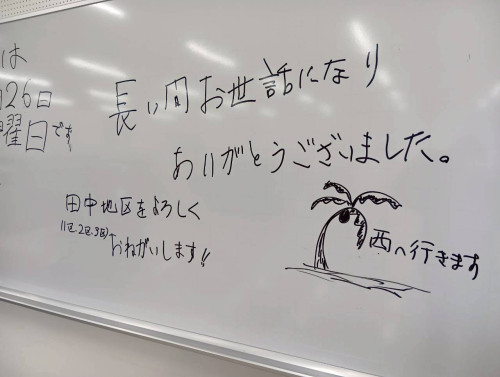 は
26日
曜日です
長い間お世話になり
ありがとうございました。
田中地区をよろしく
おねがいします!!
西へ行きます